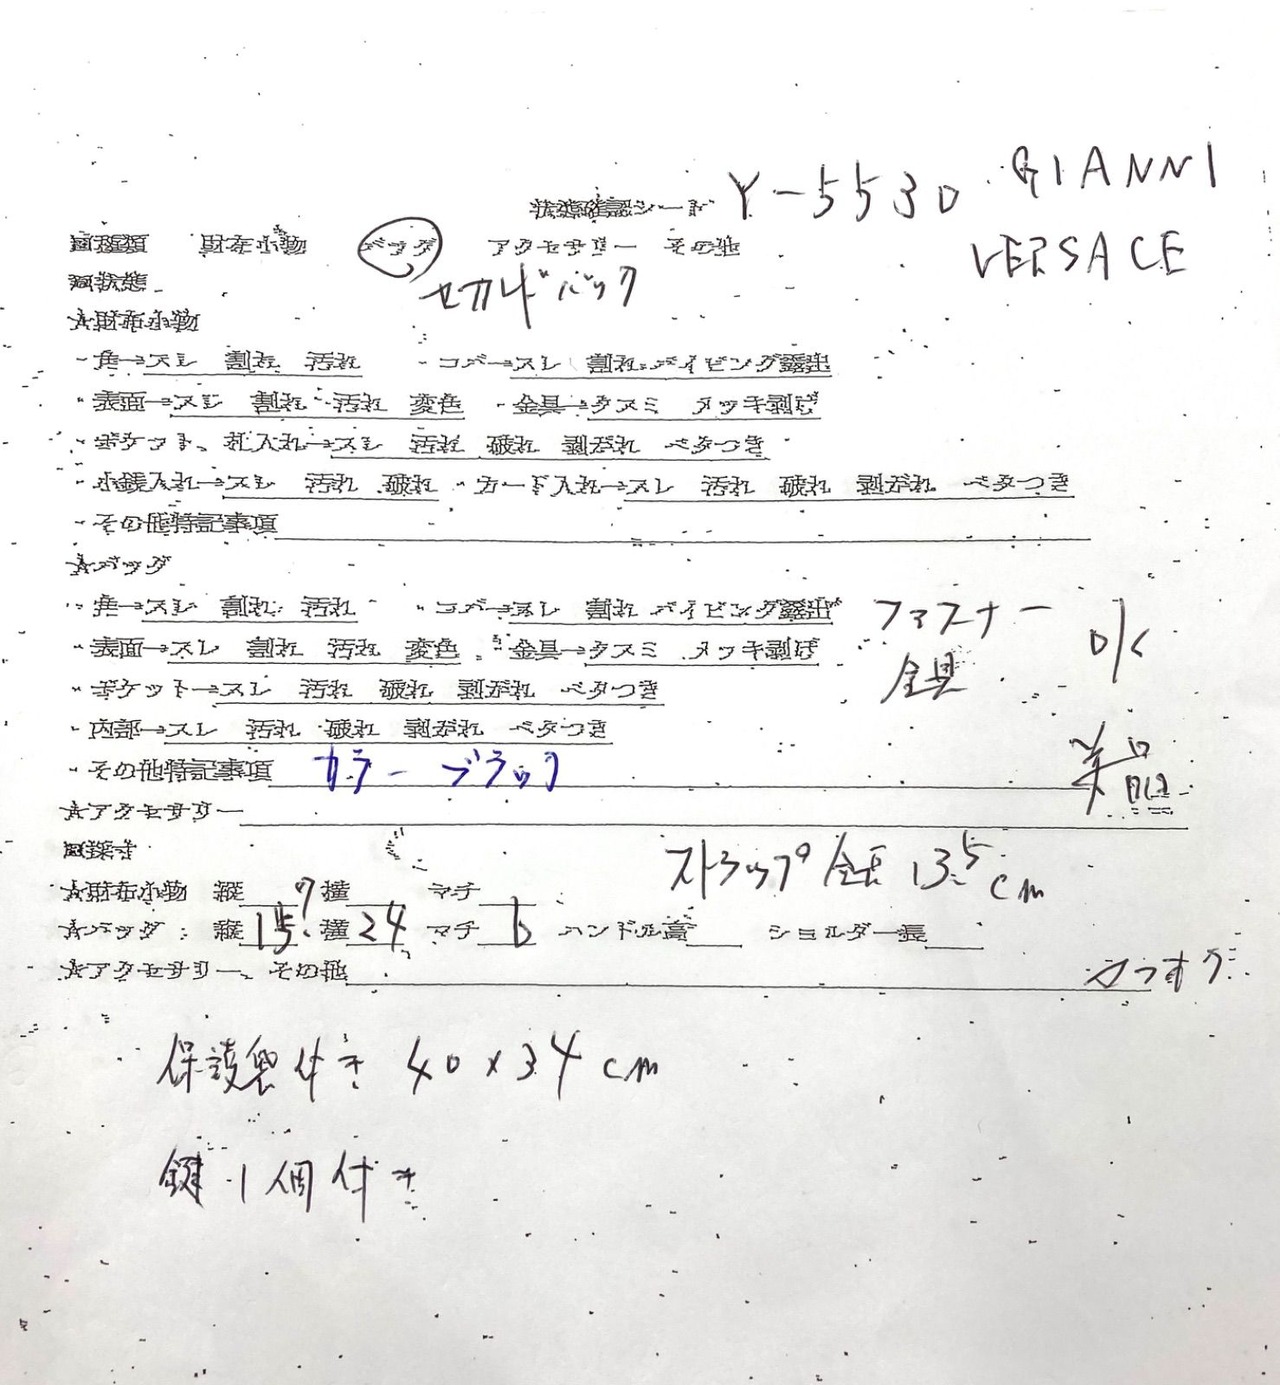 状態確認シート Y-5530 GIANNI
VERSACE
回種類 財布小物 バッグ アクセサリー その他
セカンドバック
回状態
★財布小物
・角→スレ 割れ 汚れ ・コバ→スレ 割れ パイピング露出
・表面→スレ 割れ 汚れ 変色 ・金具→クスミ メッキ剥げ
・ポケット、札入れ→スレ 汚れ 破れ 剥がれ ベタつき
・小銭入れ→スレ 汚れ 破れ ・カード入れ→スレ 汚れ 破れ 剥がれ ベタつき
・その他特記事項
★バッグ
・角→スレ 割れ 汚れ ・コバ→スレ 割れ パイピング露出
・表面→スレ 割れ 汚れ 変色 ・金具→クスミ メッキ剥げ
ファスナー 金具 OK
・ポケット→スレ 汚れ 破れ 剥がれ ベタつき
・内部→スレ 汚れ 破れ 剥がれ ベタつき
美品
・その他特記事項 カラー ブラック
★アクセサリー
回採寸
ストラップ 全長 13.5cm
★財布小物 縦 横 マチ
★バッグ: 縦 15 横 24 マチ 6 ハンドル高 ショルダー長
★アクセサリー、その他
保護袋付き 40×34cm
鍵 1個付き